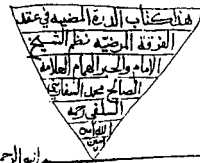 هذا كتاب الدرة المضية في عقد
الفرقة المرضية نظم الشيخ
الامام والحبر الهمام العلامة
الصالح محمد السفاريني
السلفي رحمه
الله امين
امين